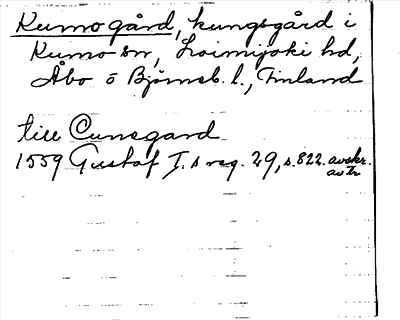 Kumogård, kungsgård i
Kumo sn, Loimijoki hd,
Åbo o Björneb. l., Finland
till Cunsgard
1559 Gustaf I.s reg. 29, s. 822. avskr.
av tr